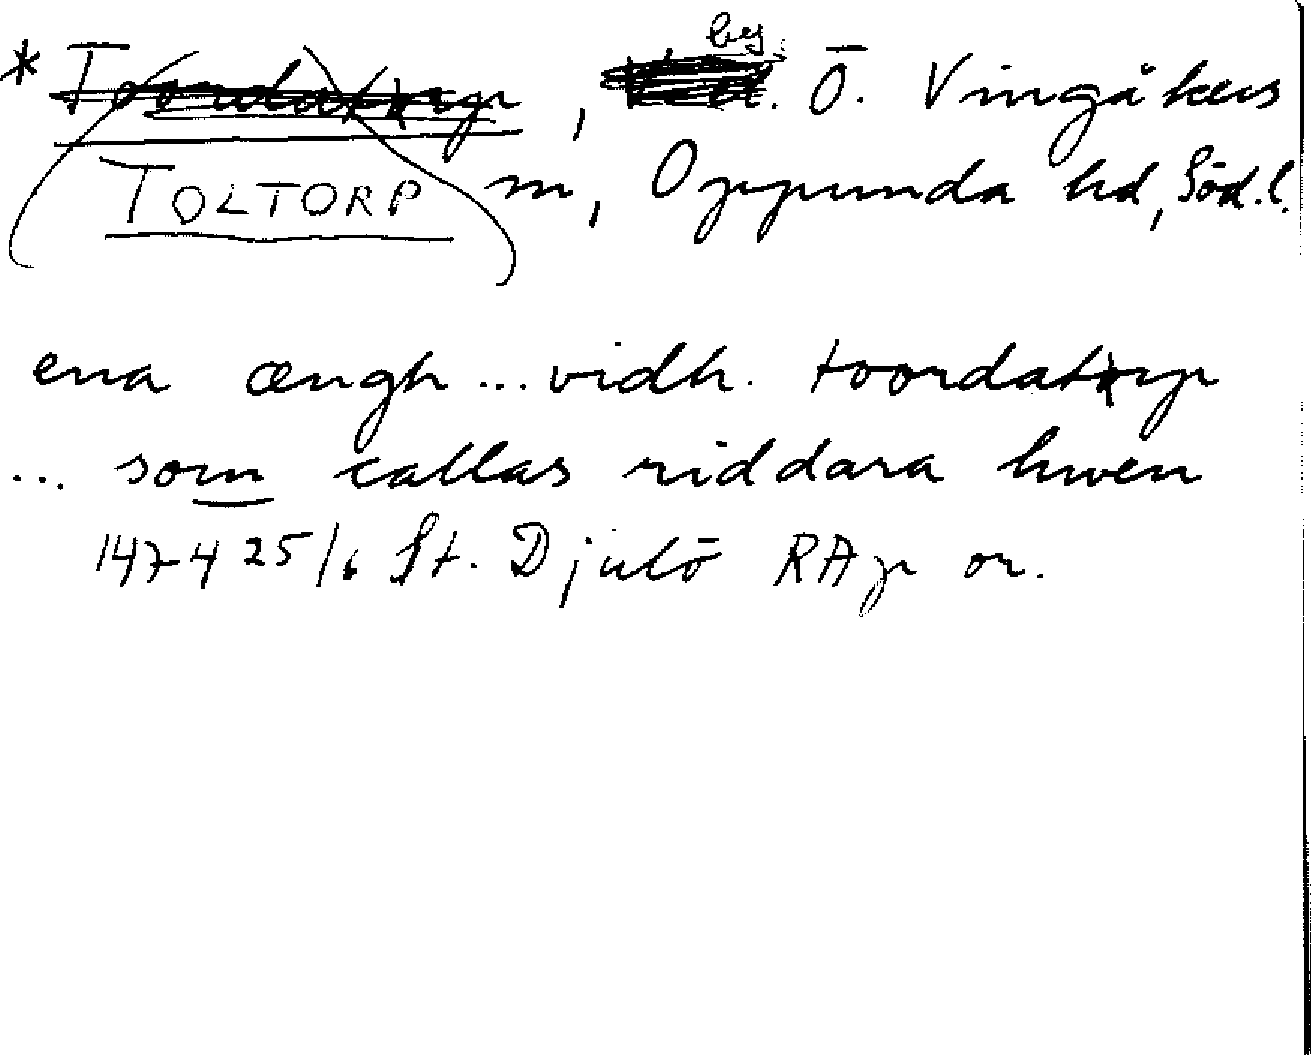 by
* Toordatorp, . Ö. Vingåkers
TOLTORP sn, Oppunda hd, Söd.l.
ena ængh ... vidh. toordatorp
... som callas riddara hwen
1474 25/6 St. Djulö RAp or.